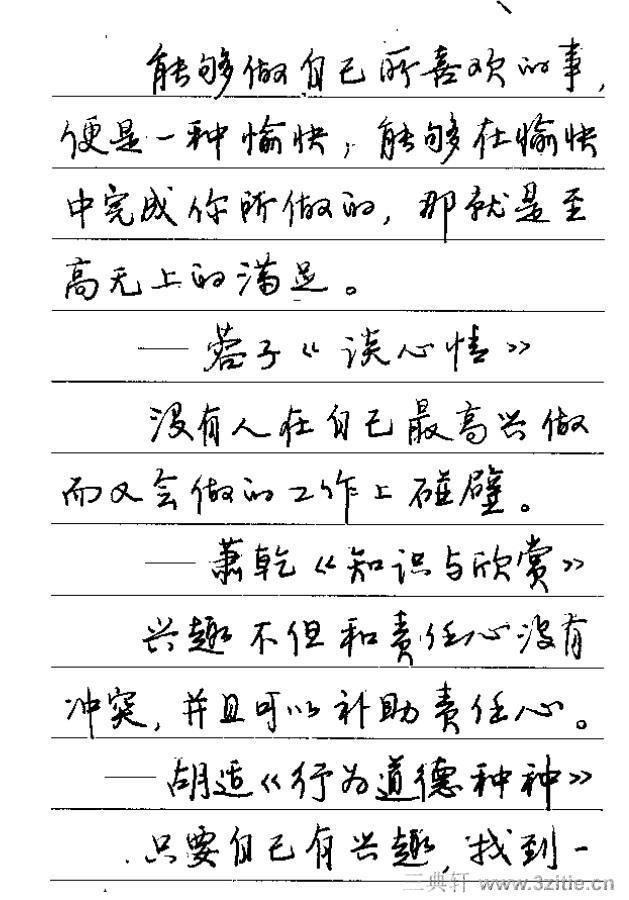 能够做自己所喜欢的事，
便是一种愉快，能够在愉快
中完成你所做的，那就是至
高无上的满足。
——蓉子《谈心情》
没有人在自己最高兴做
而又会做的工作上碰壁。
——萧乾《知识与欣赏》
兴趣不但和责任心没有
冲突，并且可以补助责任心。
——胡适《行为道德种种》
只要自己有兴趣，找到一
三典轩 www.3zitie.cn